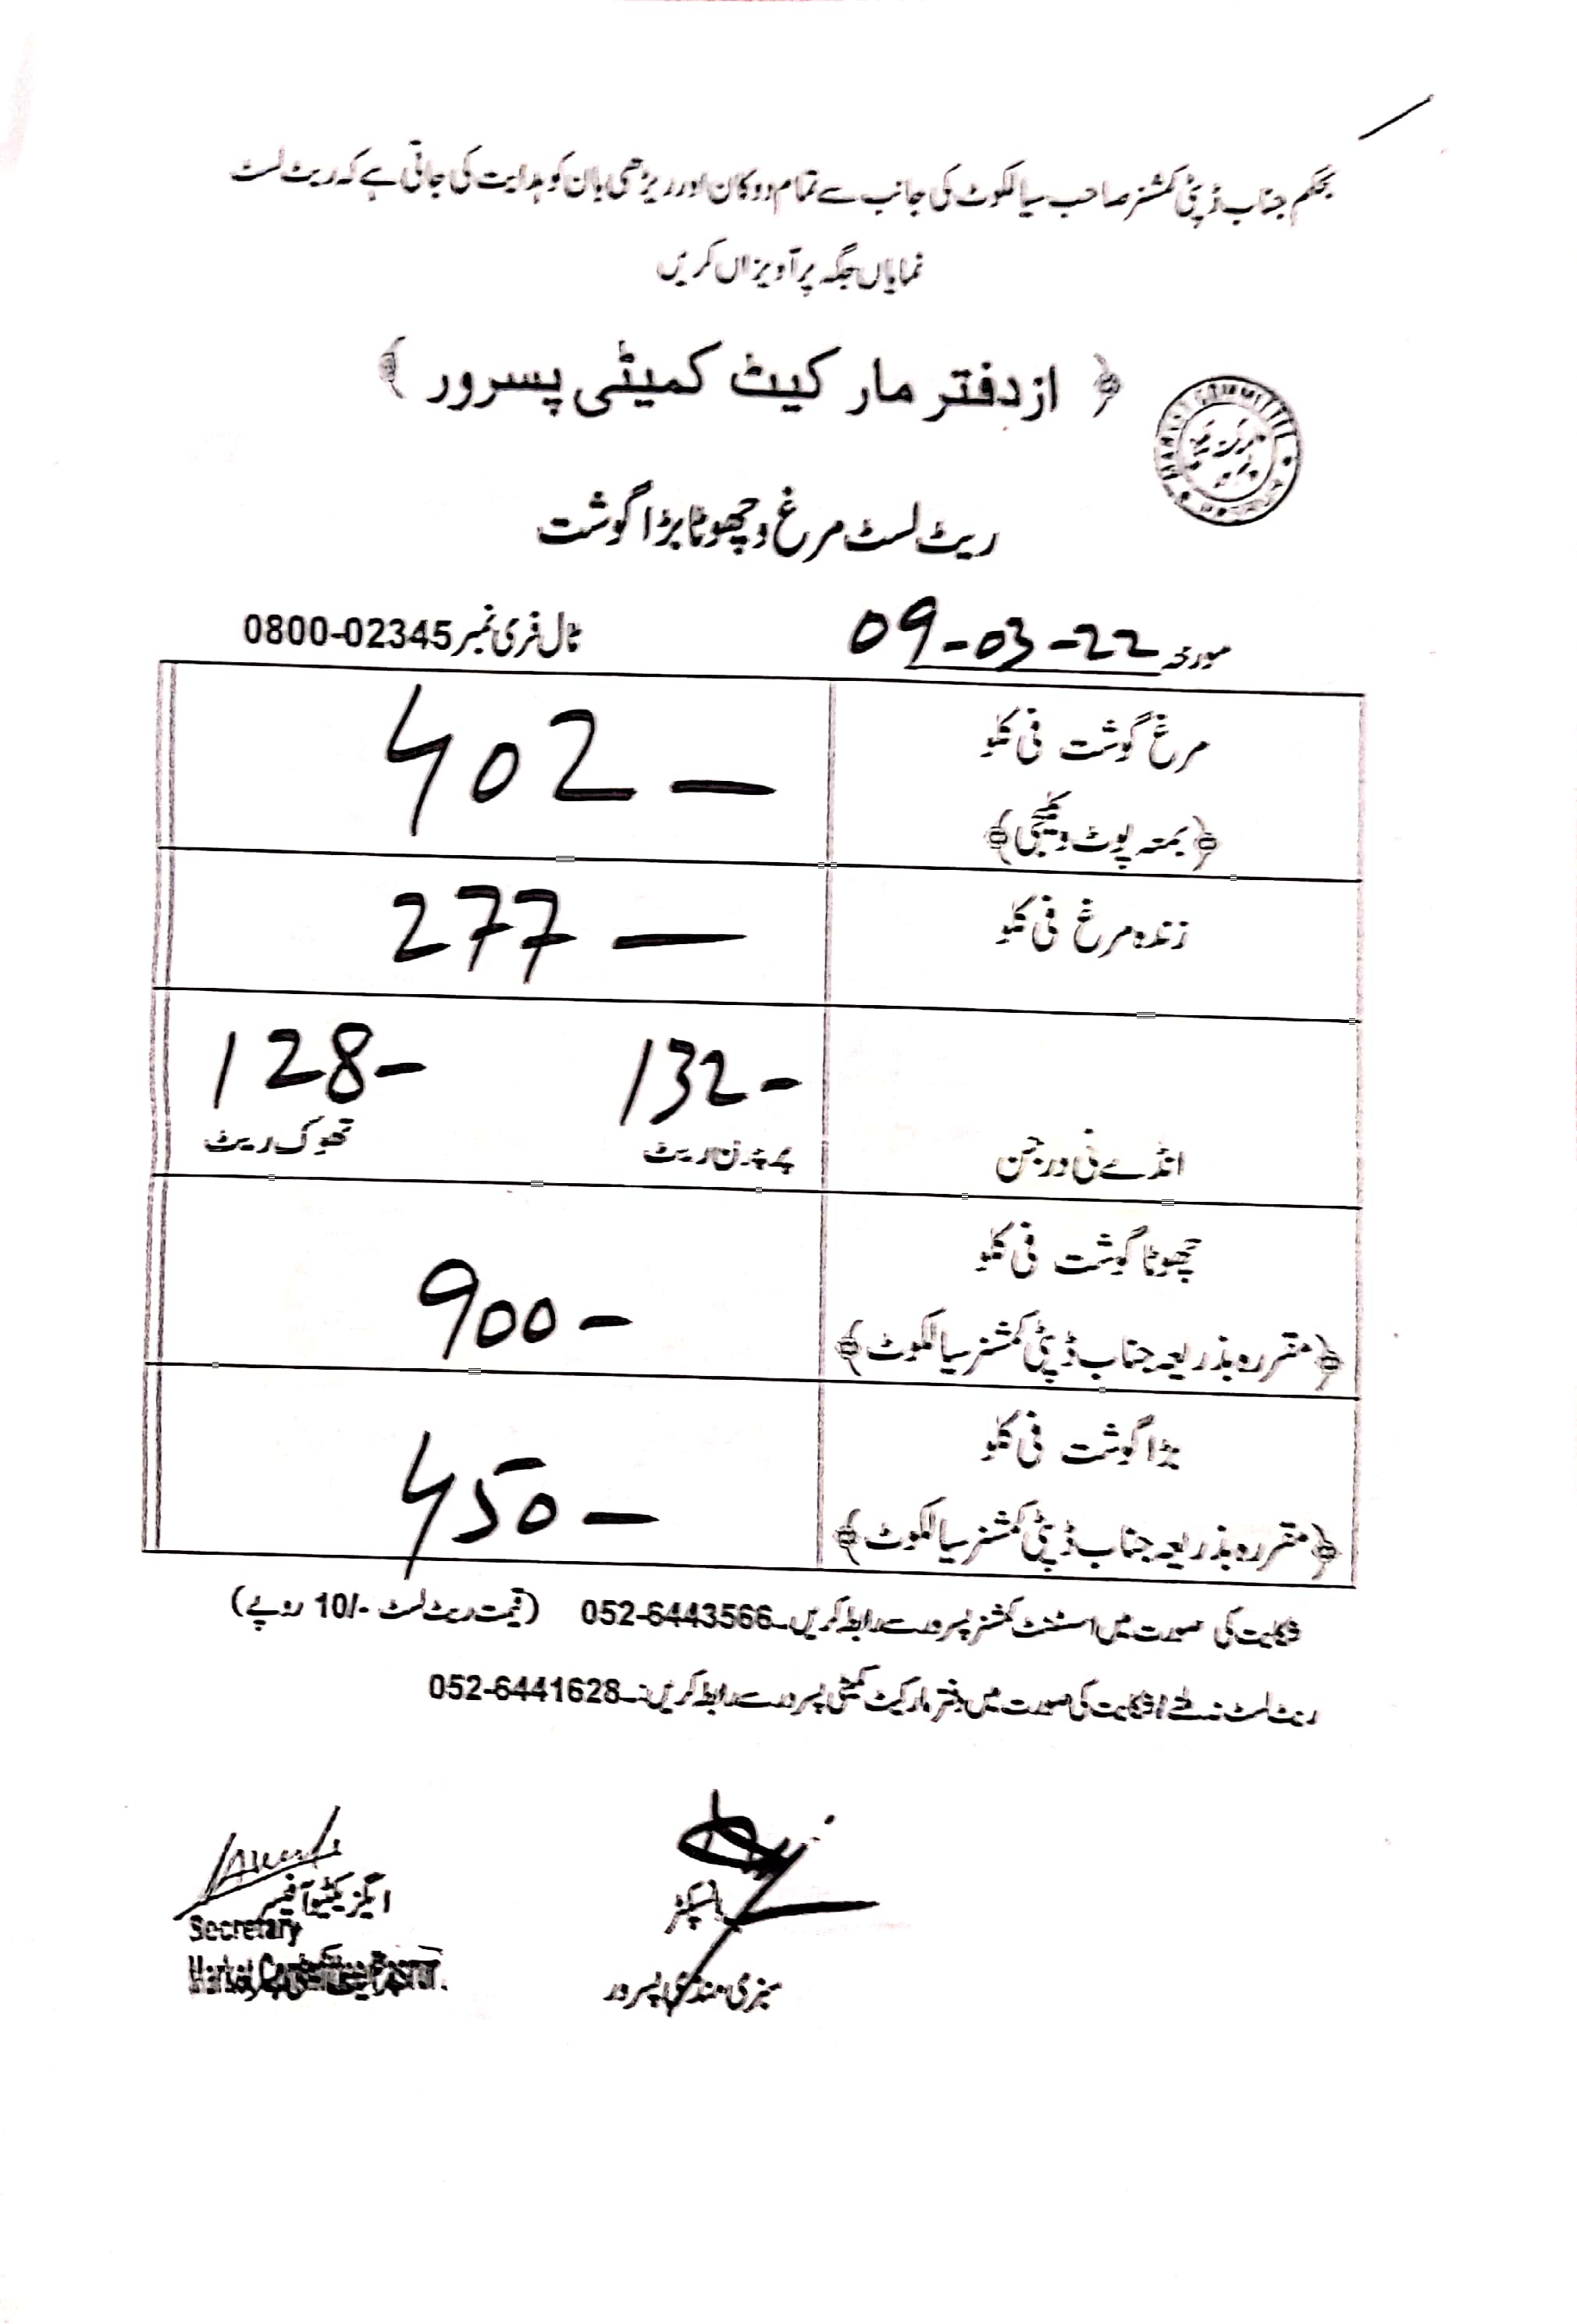 بحکم جناب ڈپٹی کمشنر صاحب سیالکوٹ کی جانب سے تمام دوکان اور ریڑھی بان کو ہدایت کی جاتی ہے کہ ریٹ لسٹ
نمایاں جگہ پر آویزاں کریں
﴿ از دفتر مارکیٹ کمیٹی پسرور ﴾
ریٹ لسٹ مرغ و چھوٹا بڑا گوشت
مورخہ 09-03-22 ٹال فری نمبر 0800-02345
مرغ گوشت فی کلو 402 —
﴿بمعہ پوٹ و کلیجی﴾
زندہ مرغ فی کلو 277 —
132 - 128 -
انڈے فی درجن پرچون ریٹ تھوک ریٹ
چھوٹا گوشت فی کلو 900 -
﴿مقررہ بذریعہ جناب ڈپٹی کمشنر سیالکوٹ﴾
بڑا گوشت فی کلو 450 -
﴿مقررہ بذریعہ جناب ڈپٹی کمشنر سیالکوٹ﴾
شکایت کی صورت میں اسسٹنٹ کمشنر پسرور سے رابطہ کریں۔ 052-6443566 (قیمت ریٹ لسٹ -/10 روپے)
ریٹ لسٹ نہ ملنے / شکایت کی صورت میں دفتر مارکیٹ کمیٹی پسرور سے رابطہ کریں:۔ 052-6441628
انسپکٹر ایگزیکٹیو آفیسر
Secretary
سبزی منڈی پسرور Market Committee